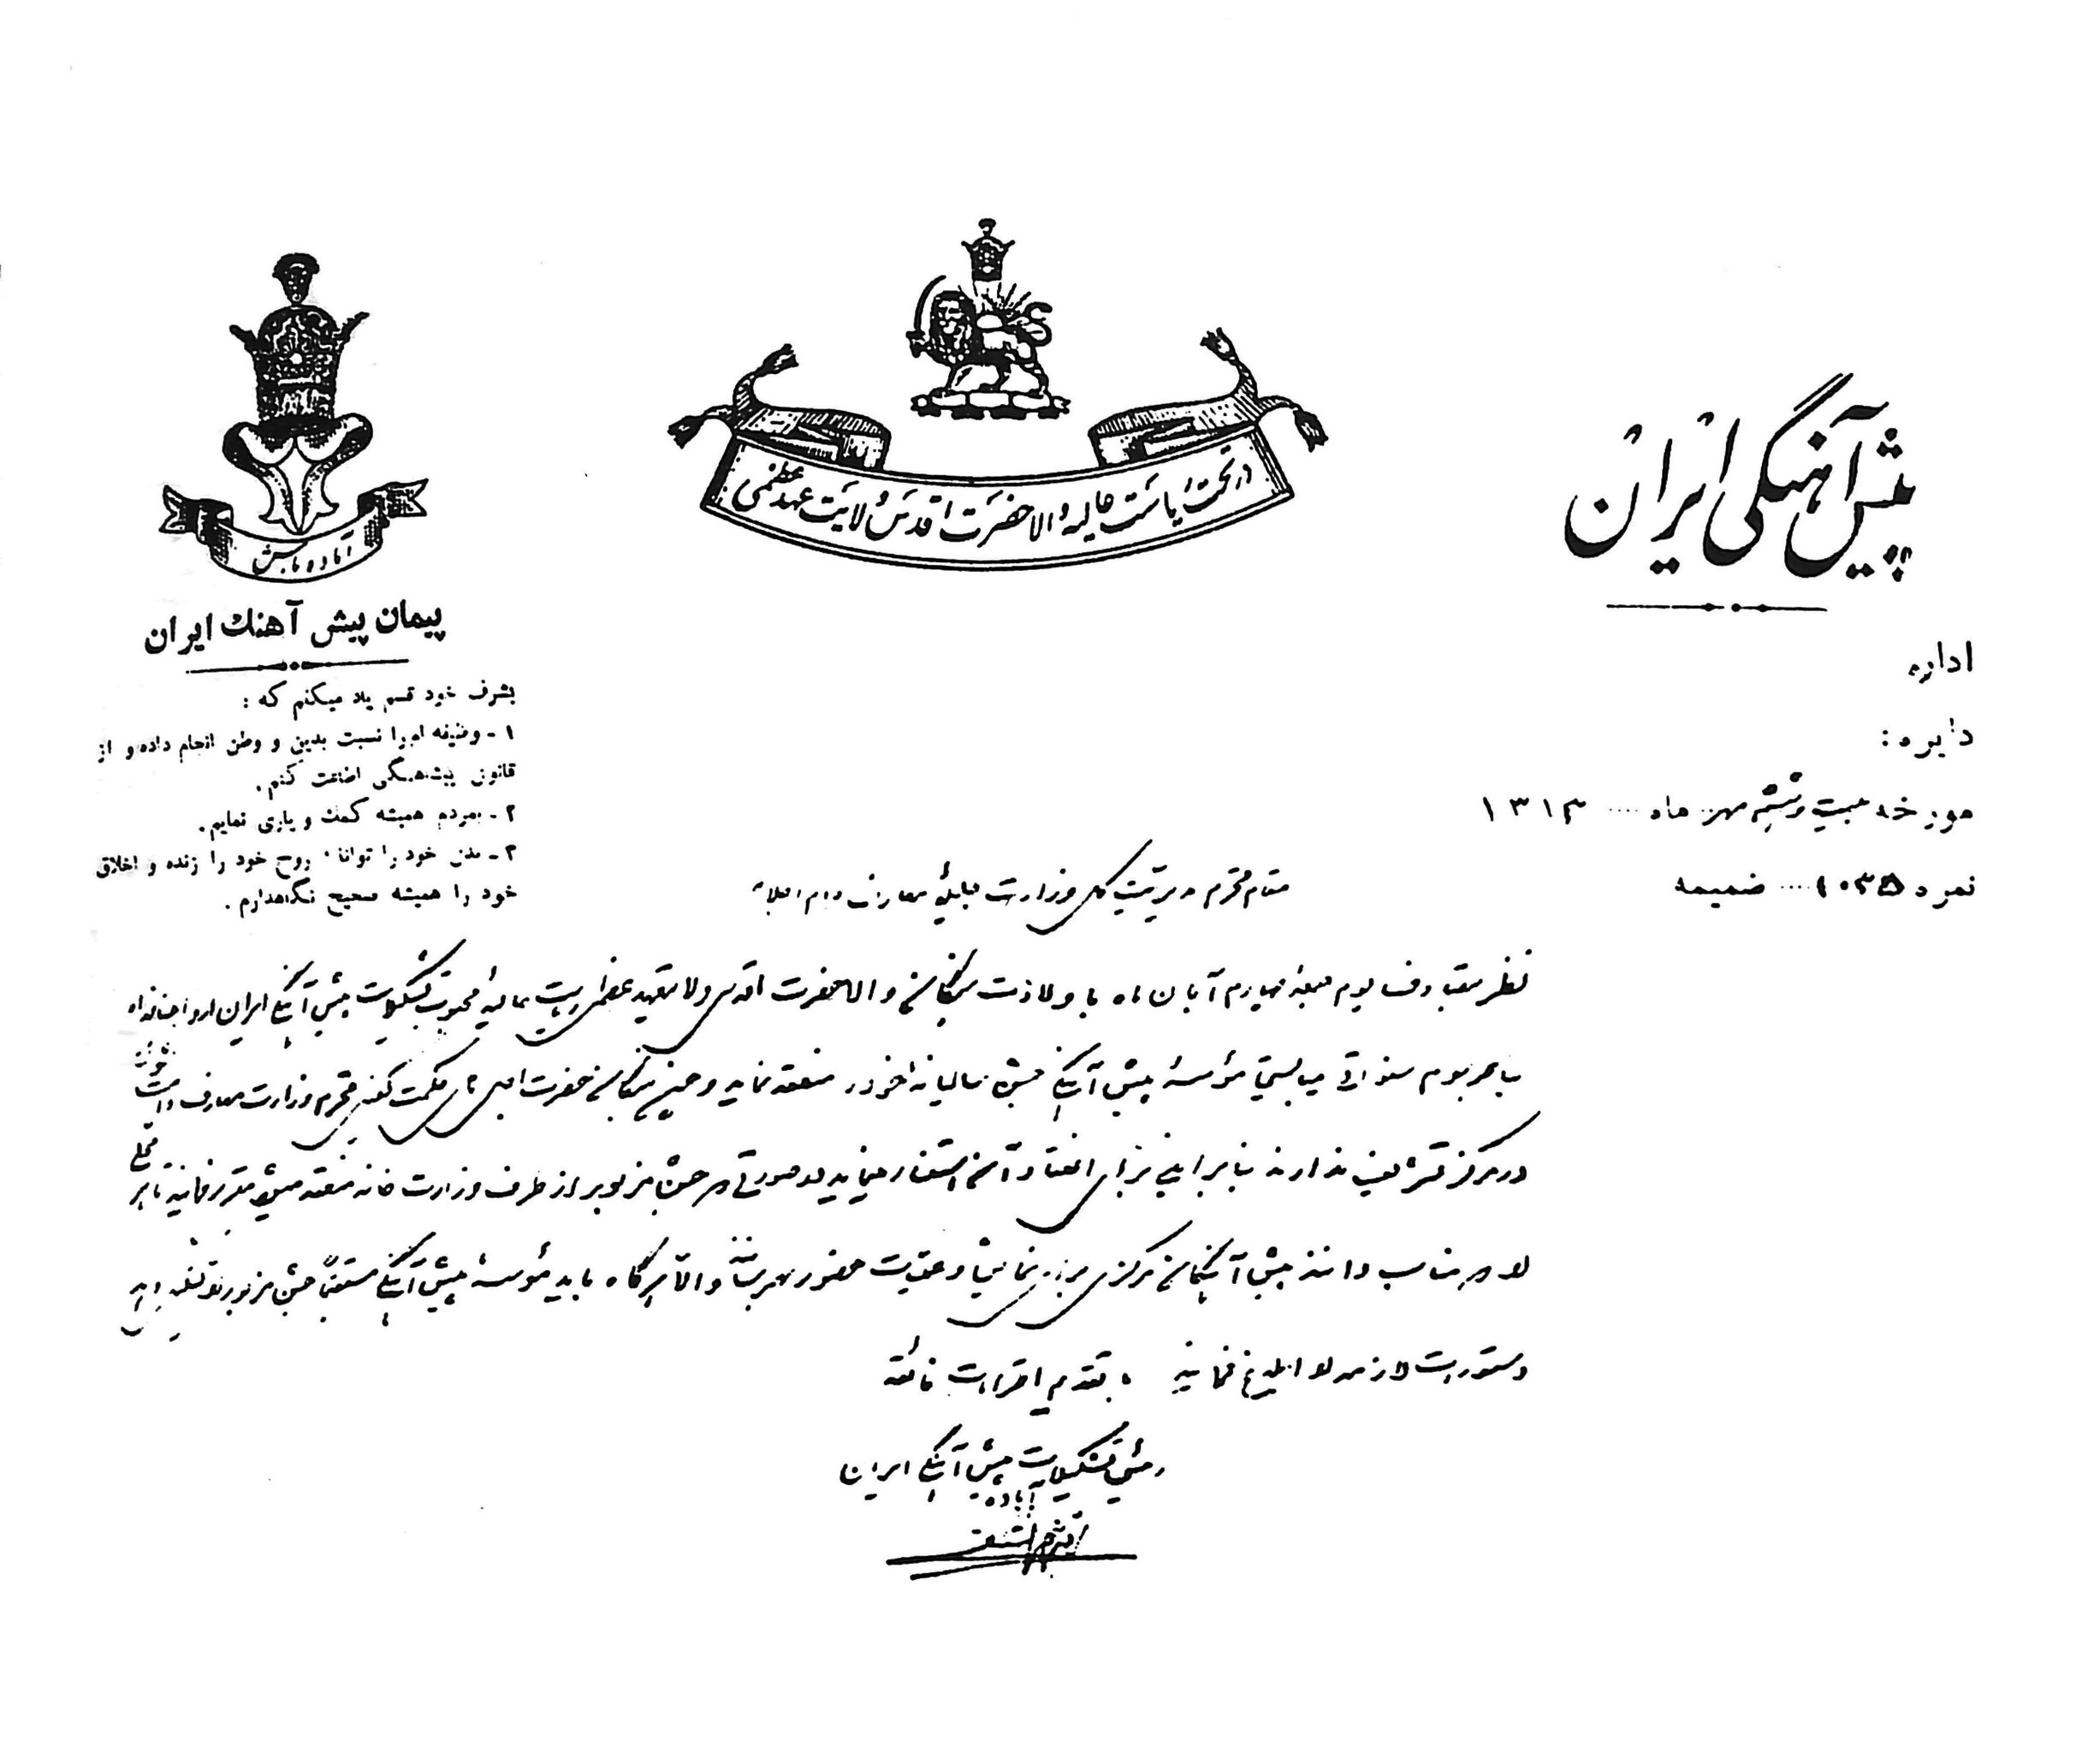 پیش آهنگی ایران
در تحت ریاست عالیه والاحضرت اقدس ولایت عهد عظمی
آماده باش
پیمان پیش آهنك ایران
بشرف خود قسم یاد میکنم که :
۱ - وظیفه ام را نسبت بدین و وطن انجام داده و از
قانون پیشاهنگی اطاعت کنم.
۲ - بمردم همیشه کمك و یاری نمایم.
۳ - بدن خود را توانا، روح خود را زنده و اخلاق
خود را همیشه صحیح نگاهدارم.
اداره
دایره :
مورخه بیست و ششم مهر ماه .... ۱۳۱۳
نمره ۱۰۳۵ .... ضمیمه
مقام محترم مدیریت کل وزارت جلیله معارف دام اجلاله
نظر بتصادف یوم جمعه چهارم آبان ماه با ولادت والاحضرت اقدس ولایتعهد عظمی ریاست عالیه محبوب تشکیلات پیش آهنگی ایران ارواحنا فداه
بنا بمرسوم سنواتی میبایستی مؤسسه پیش آهنگی جشن سالیانه خود را منعقد نماید و چون حضرت اجل آقای حکمت کفیل محترم وزارت معارف دامت شوکته
در مرکز تشریف ندارند بنابراین برای انعقاد آن استفسار مینماید در صورتی که جشن مزبور از طرف وزارت خانه منعقد میشود مقرر فرمایند تا هر محلی
را که مناسب دانند پیش آهنگان مرکزی برای نمایش و عملیات حضور بهمرسانند و الا هر گاه باید مؤسسه پیش آهنگی مستقلاً جشن مزبور را تشکیل دهد
دستورات لازمه را ابلاغ فرمایند با تقدیم احترامات فائقه
رئیس تشکیلات پیش آهنگی ایران